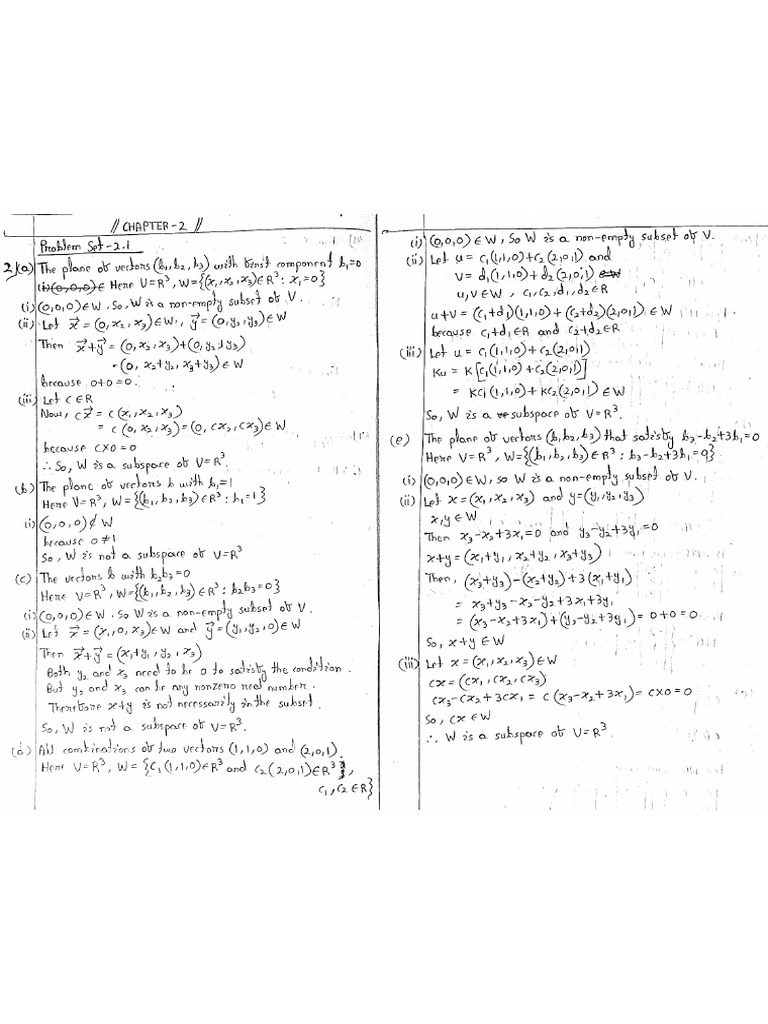 // CHAPTER-2 //
Problem Set-2.1
2)(a) The plane of vectors (b₁,b₂,b₃) with first component b₁=0
(i) (0,0,0)∈ Here V=R³, W={(x₁,x₂,x₃)∈R³: x₁=0}
(i) (0,0,0)∈W. So, W is a non-empty subset of V.
(ii) Let x⃗ = (0,x₂,x₃)∈W, y⃗=(0,y₂,y₃)∈W
Then x⃗+y⃗ = (0,x₂,x₃)+(0,y₂+y₃)
= (0, x₂+y₂, x₃+y₃)∈W
because 0+0=0.
(iii) Let c∈R
Now, cx⃗ = c(x₁,x₂,x₃)
= c(0,x₂,x₃)=(0,cx₂,cx₃)∈W
because c×0=0
∴ So, W is a subspace of V=R³.
(b) The plane of vectors b with b₁=1
Here V=R³, W={(b₁,b₂,b₃)∈R³: b₁=1}
(i) (0,0,0)∉W
because 0≠1
So, W is not a subspace of V=R³
(c) The vectors b with b₂b₃=0
Here V=R³, W={(b₁,b₂,b₃)∈R³: b₂b₃=0}
(i) (0,0,0)∈W. So W is a non-empty subset of V.
(ii) Let x⃗=(x₁,0,x₃)∈W and y⃗=(y₁,y₂,0)∈W
Then x⃗+y⃗ = (x₁+y₁,y₂,x₃)
Both y₂ and x₃ need to be 0 to satisfy the condition.
But y₂ and x₃ can be any nonzero real number.
Therefore x+y is not necessarily in the subset.
So, W is not a subspace of V=R³.
(d) All combinations of two vectors (1,1,0) and (2,0,1).
Here V=R³, W={c₁(1,1,0)∈R³ and c₂(2,0,1)∈R³,
c₁,c₂∈R}
(i) (0,0,0)∈W, So W is a non-empty subset of V.
(ii) Let u = c₁(1,1,0)+c₂(2,0,1) and
v = d₁(1,1,0)+d₂(2,0,1)
u,v∈W, c₁,c₂,d₁,d₂∈R
u+v = (c₁+d₁)(1,1,0)+(c₂+d₂)(2,0,1)∈W
because c₁+d₁∈R and c₂+d₂∈R
(iii) Let u = c₁(1,1,0)+c₂(2,0,1)
Ku = K[c₁(1,1,0)+c₂(2,0,1)]
= Kc₁(1,1,0)+Kc₂(2,0,1)∈W
So, W is a subspace of V=R³.
(e) The plane of vectors (b₁,b₂,b₃) that satisfy b₃-b₂+3b₁=0
Here V=R³, W={(b₁,b₂,b₃)∈R³: b₃-b₂+3b₁=0}
(i) (0,0,0)∈W, so W is a non-empty subset of V.
(ii) Let x=(x₁,x₂,x₃) and y=(y₁,y₂,y₃)
x,y∈W
Then x₃-x₂+3x₁=0 and y₃-y₂+3y₁=0
x+y=(x₁+y₁, x₂+y₂, x₃+y₃)
Then, (x₃+y₃)-(x₂+y₂)+3(x₁+y₁)
= x₃+y₃-x₂-y₂+3x₁+3y₁
= (x₃-x₂+3x₁)+(y₃-y₂+3y₁)=0+0=0.
So, x+y∈W
(iii) Let x=(x₁,x₂,x₃)∈W
cx=(cx₁,cx₂,cx₃)
cx₃-cx₂+3cx₁ = c(x₃-x₂+3x₁)=c×0=0
So, cx∈W
∴ W is a subspace of V=R³.